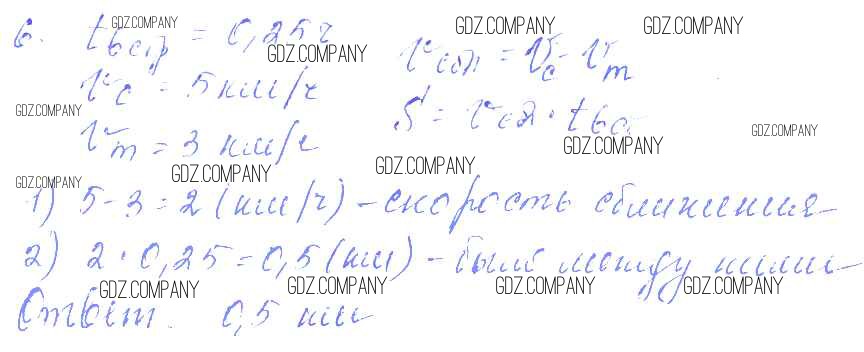 6. t встр = 0,25 ч v сбл = v с - v т
v с = 5 км/ч S = v сбл · t вс
v т = 3 км/ч
1) 5-3=2 (км/ч) - скорость сближения
2) 2·0,25=0,5 (км) - было между ними
Ответ. 0,5 км
GDZ.COMPANY
GDZ.COMPANY
GDZ.COMPANY
GDZ.COMPANY
GDZ.COMPANY
GDZ.COMPANY
GDZ.COMPANY
GDZ.COMPANY
GDZ.COMPANY
GDZ.COMPANY
GDZ.COMPANY
GDZ.COMPANY
GDZ.COMPANY
GDZ.COMPANY